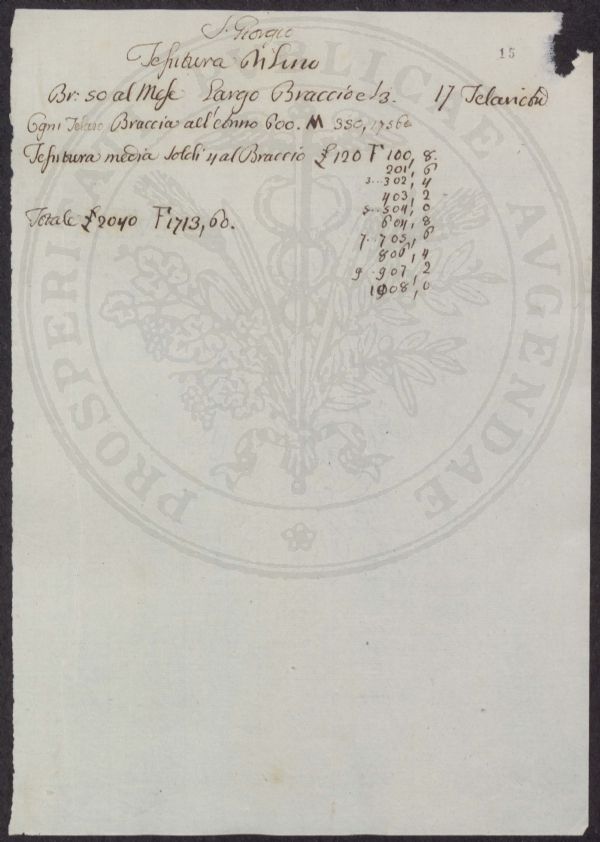 S. Giorgio
15
Tessitura di Lino
Br: 50 al Mese Largo Braccio e 1/3. 17 Telari
Ogni Telaro Braccia all'anno 600. M 350,
Tessitura media soldi 4 al Braccio £ 120 F 100, 8.
201, 6
3..302, 4
403, 2
5..504, 0
604, 8
7..705, 6
806, 4
9..907, 2
1008, 0
Totale £ 2040 F 1713, 60.
PROSPERITATI PVBLICAE AVGENDAE